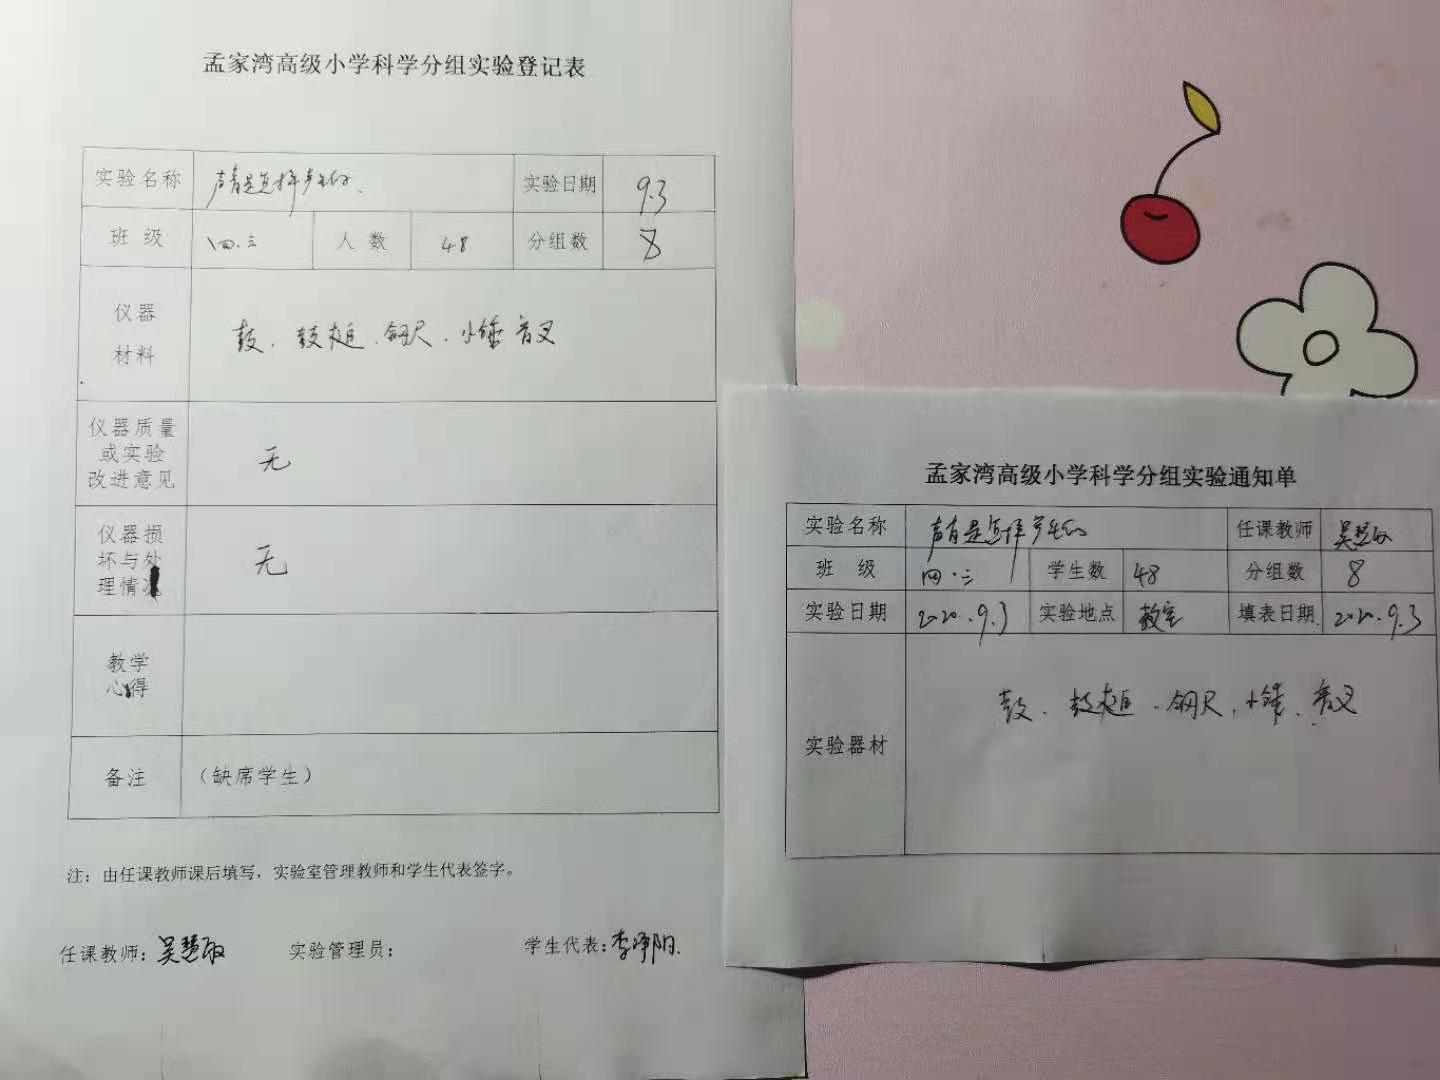 孟家湾高级小学科学分组实验登记表
实验名称 声音是怎样产生的. 实验日期 9.3
班 级 四.三 人 数 48 分组数 8
仪器
材料
鼓. 鼓槌. 钢尺. 小锤 音叉
仪器质量
或实验
改进意见
无
仪器损
坏与处
理情况
无
教学
心得
备注 (缺席学生)
注：由任课教师课后填写，实验室管理教师和学生代表签字。
任课教师：吴慧敏 实验管理员： 学生代表：李 阳.
孟家湾高级小学科学分组实验通知单
实验名称 声音是怎样产生的 任课教师 吴慧敏
班 级 四.三 学生数 48 分组数 8
实验日期 2020.9.3 实验地点 教室 填表日期 2020.9.3
实验器材 鼓. 鼓槌. 钢尺. 小锤. 音叉